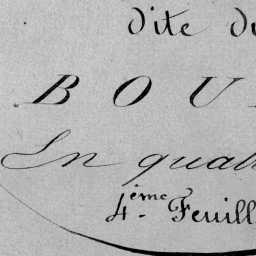 dite du
BOU
En quat
4ème Feuill